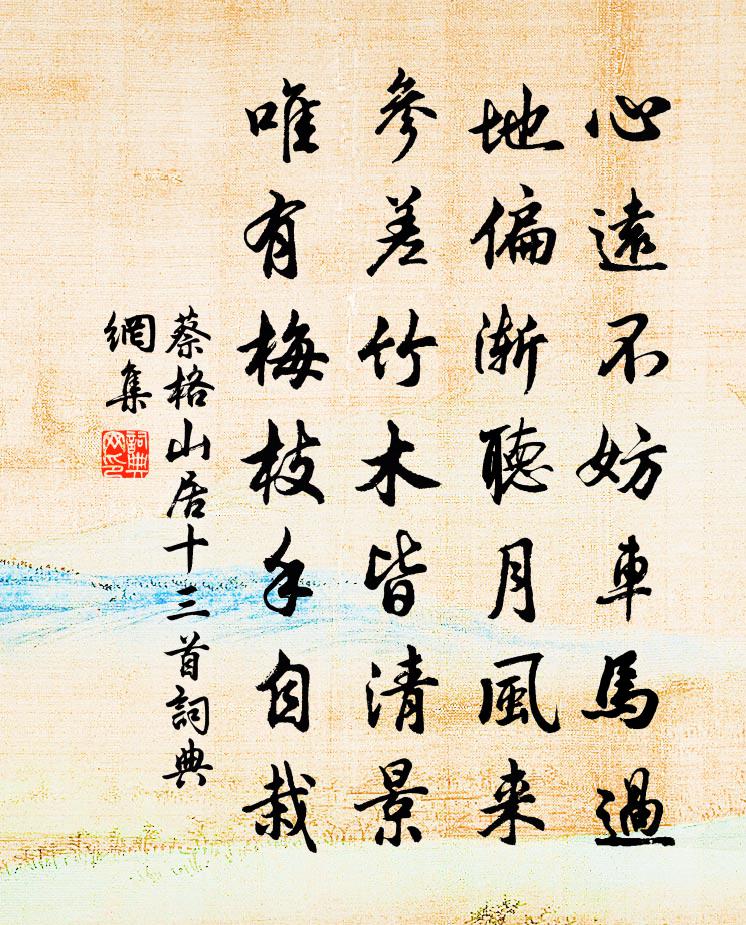 心遠不妨車馬過
地偏漸聽月風来
參差竹木皆清景
唯有梅枝手自栽
蔡格山居十三首詞典
網集
詞典
网印